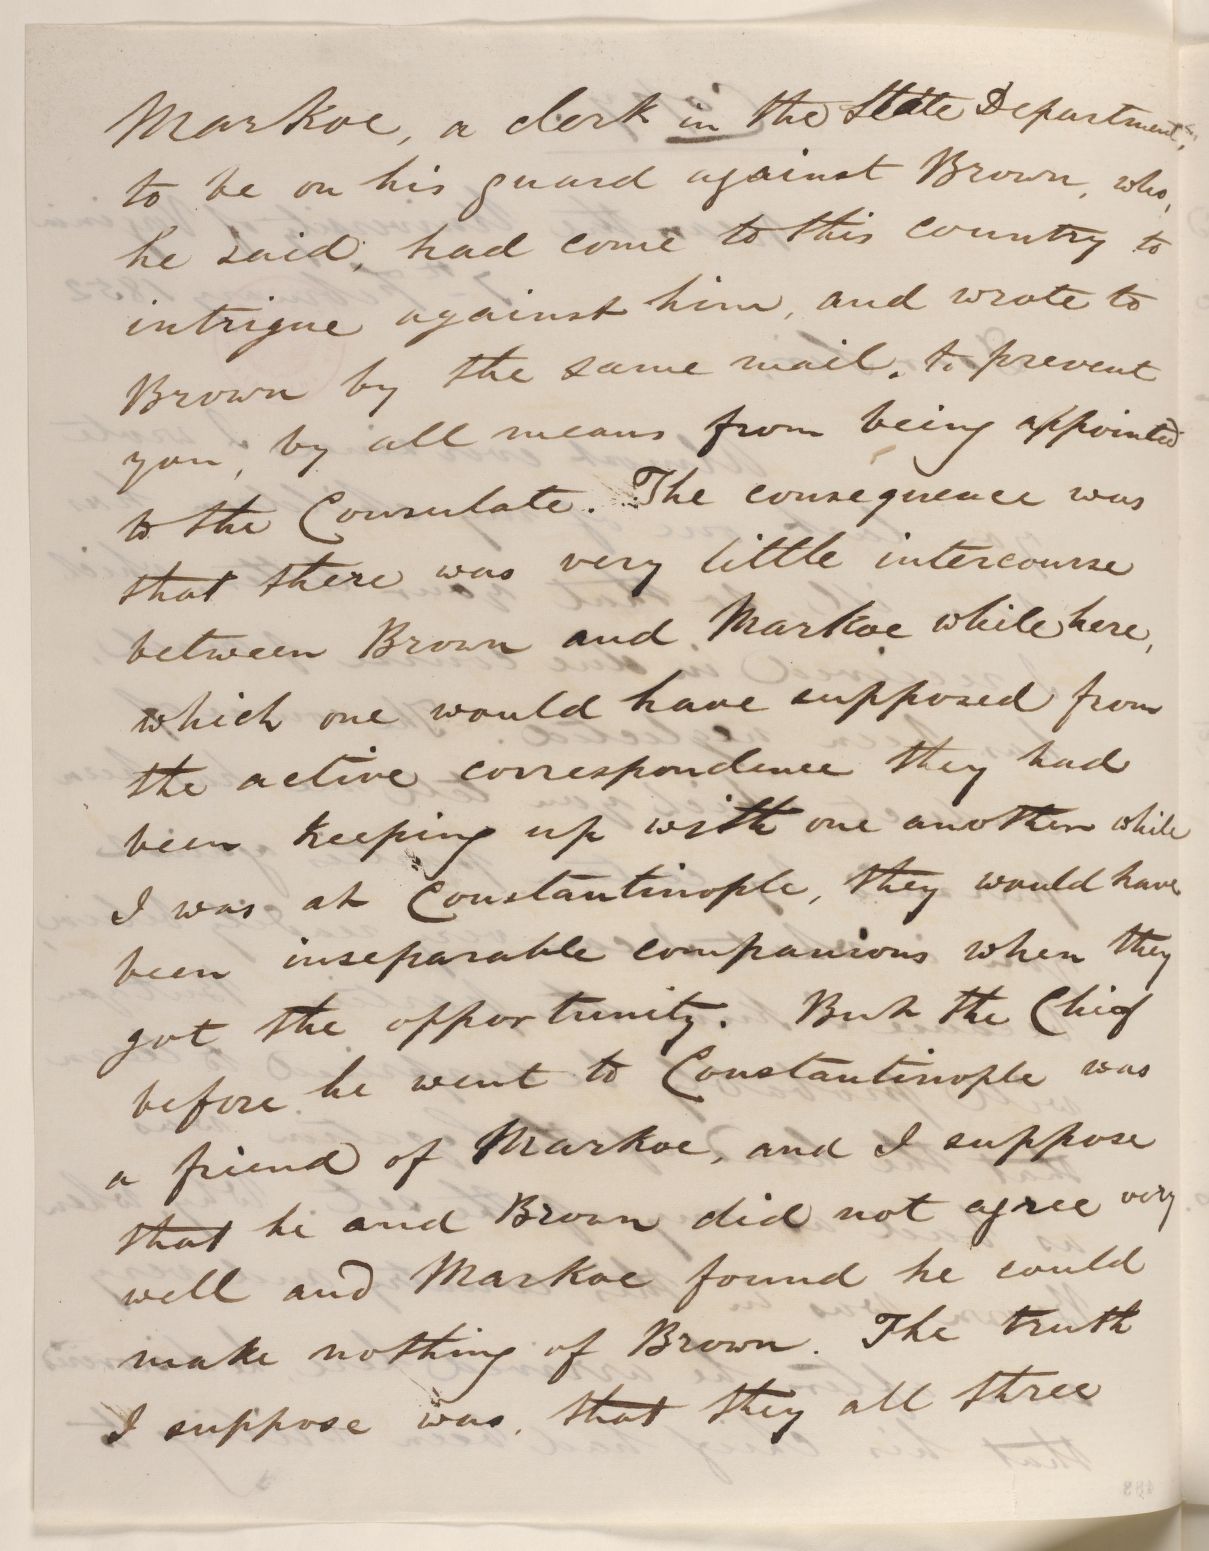 Markoe, a clerk in the State Department,
to be on his guard against Brown, who,
he said, had come to this country to
intrigue against him, and wrote to
Brown by the same mail, to prevent
you, by all means from being appointed
to the Consulate. The consequence was
that there was very little intercourse
between Brown and Markoe while here,
which one would have supposed from
the active correspondence they had
been keeping up with one another while
I was at Constantinople, they would have
been inseparable companions when they
got the opportunity. But the Chief
before he went to Constantinople was
a friend of Markoe, and I suppose
that he and Brown did not agree very
well and Markoe found he could
make nothing of Brown. The truth
I suppose was, that they all three